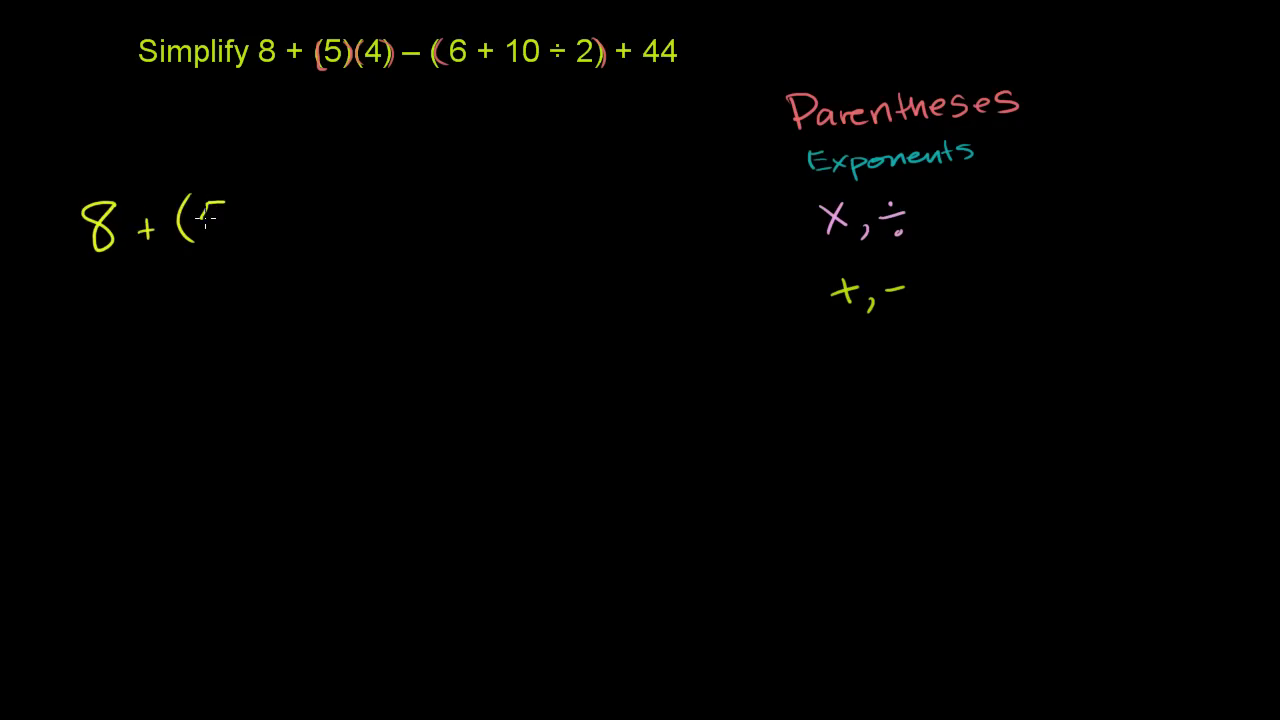 Simplify 8 + (5)(4) – (6 + 10 ÷ 2) + 44
Parentheses
Exponents
×, ÷
+, -
8 + (5